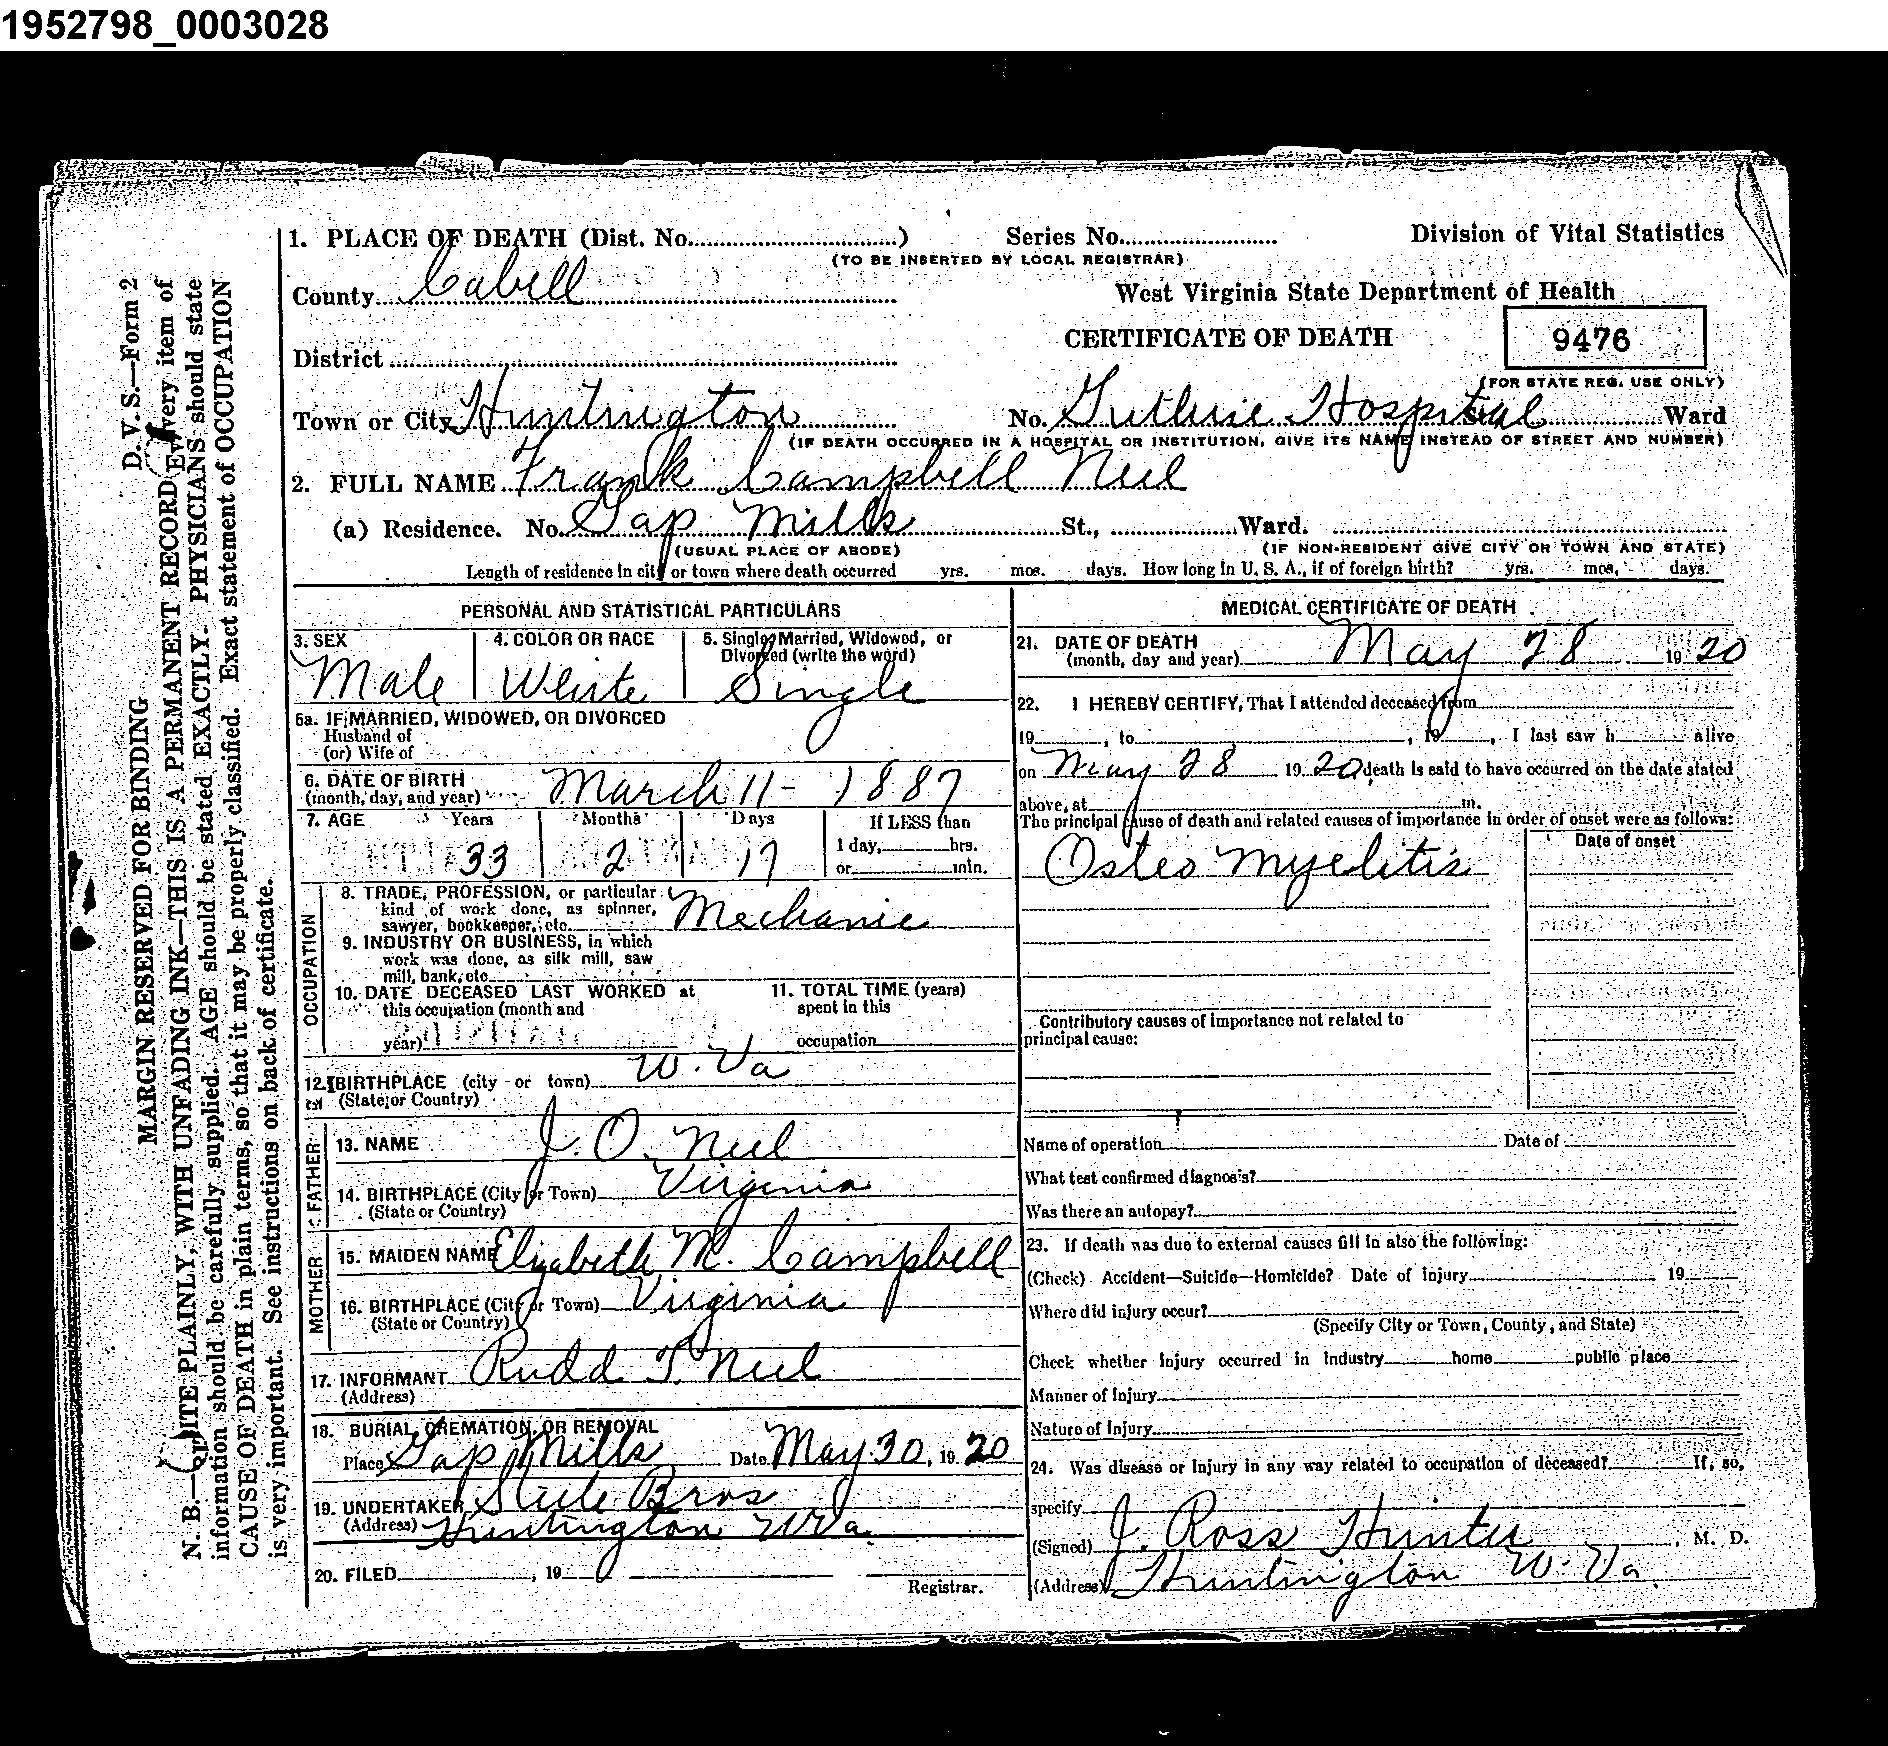 1952798_0003028
1. PLACE OF DEATH (Dist. No.) Series No. Division of Vital Statistics
(TO BE INSERTED BY LOCAL REGISTRAR)
County Cabell West Virginia State Department of Health
District CERTIFICATE OF DEATH 9476
(FOR STATE REG. USE ONLY)
Town or City Huntington No. Guthrie Hospital Ward
(IF DEATH OCCURRED IN A HOSPITAL OR INSTITUTION, GIVE ITS NAME INSTEAD OF STREET AND NUMBER)
2. FULL NAME Frank Campbell Neel
(a) Residence. No. Gap Mills St., Ward.
(USUAL PLACE OF ABODE) (IF NON-RESIDENT GIVE CITY OR TOWN AND STATE)
Length of residence in city or town where death occurred yrs. mos. days. How long in U. S. A., if of foreign birth? yrs. mos. days.
PERSONAL AND STATISTICAL PARTICULARS
3. SEX 4. COLOR OR RACE 5. Single, Married, Widowed, or
Divorced (write the word)
Male White Single
5a. IF MARRIED, WIDOWED, OR DIVORCED
Husband of
(or) Wife of
6. DATE OF BIRTH
(month, day, and year) March 11 - 1887
7. AGE Years Months Days If LESS than
33 2 17 1 day, hrs.
or min.
OCCUPATION
8. TRADE, PROFESSION, or particular
kind of work done, as spinner,
sawyer, bookkeeper, etc. Mechanic
9. INDUSTRY OR BUSINESS, in which
work was done, as silk mill, saw
mill, bank, etc
10. DATE DECEASED LAST WORKED at 11. TOTAL TIME (years)
this occupation (month and spent in this
year) occupation
12. BIRTHPLACE (city or town) W. Va
(State or Country)
FATHER
13. NAME J. O. Neel
14. BIRTHPLACE (City or Town) Virginia
(State or Country)
MOTHER
15. MAIDEN NAME Elizabeth M. Campbell
16. BIRTHPLACE (City or Town) Virginia
(State or Country)
17. INFORMANT Rudd T. Neel
(Address)
18. BURIAL, CREMATION, OR REMOVAL
Place Gap Mills Date May 30, 19 20
19. UNDERTAKER Steele Bros
(Address) Huntington W Va.
20. FILED , 19
Registrar.
MEDICAL CERTIFICATE OF DEATH
21. DATE OF DEATH
(month, day and year) May 28 19 20
22. I HEREBY CERTIFY, That I attended deceased from
19 , to , 19 , I last saw h alive
on May 28 19 20 death is said to have occurred on the date stated
above, at m.
The principal cause of death and related causes of importance in order of onset were as follows:
Date of onset
Osteo Myelitis
Contributory causes of importance not related to
principal cause:
Name of operation Date of
What test confirmed diagnosis?
Was there an autopsy?
23. If death was due to external causes fill in also the following:
(Check) Accident—Suicide—Homicide? Date of injury 19
Where did injury occur?
(Specify City or Town, County, and State)
Check whether injury occurred in industry home public place
Manner of injury
Nature of injury
24. Was disease or injury in any way related to occupation of deceased? If, so,
specify
(Signed) J. Ross Hunter, M. D.
(Address) Huntington W. Va.
D. V. S.—Form 2
MARGIN RESERVED FOR BINDING
N. B.—WRITE PLAINLY, WITH UNFADING INK—THIS IS A PERMANENT RECORD. Every item of
information should be carefully supplied. AGE should be stated EXACTLY. PHYSICIANS should state
CAUSE OF DEATH in plain terms, so that it may be properly classified. Exact statement of OCCUPATION
is very important. See instructions on back of certificate.